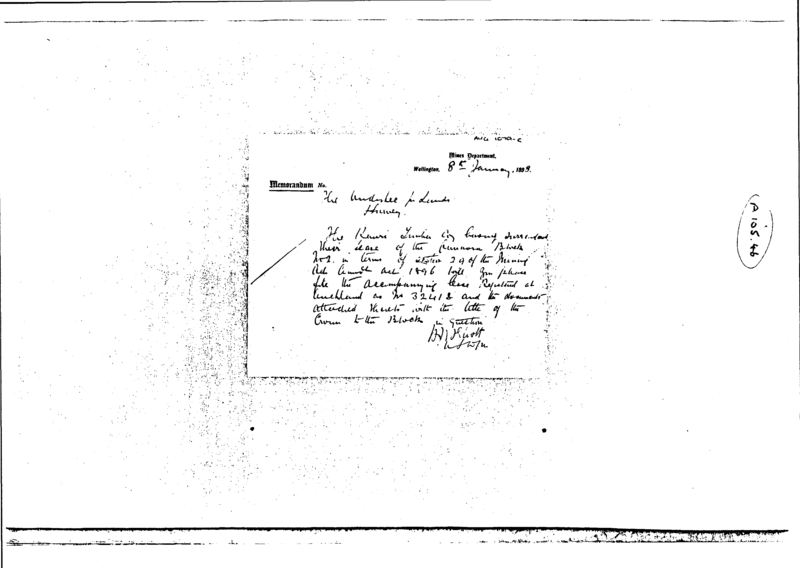 Mines Department,
Wellington, 8th January, 1898.
Memorandum No.
The Undersec for Lands
Survey.
The Kauri Timber Coy having surrendered
their lease of the Block
No 2. in terms of section 29 of the Mining
Act Amdt Act 1896 will you please
file the accompanying lease Registered at
Auckland as No 32412 and the documents
attached thereto with the title of the
Crown to the Block in question
A 105.46